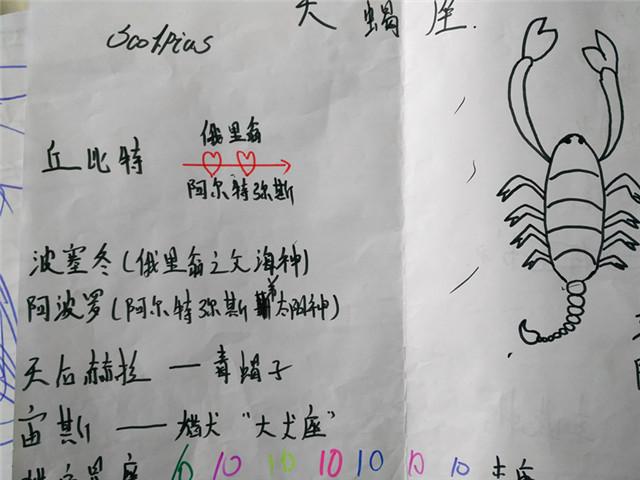 Scorpius
天蝎座.
俄里翁
丘比特
阿尔特弥斯
波塞冬(俄里翁之父海神)
阿波罗(阿尔特弥斯弟太阳神)
天后赫拉 — 毒蝎子
宙斯 —— 猎犬 "大犬座"
10 10 10 10 10 10 10